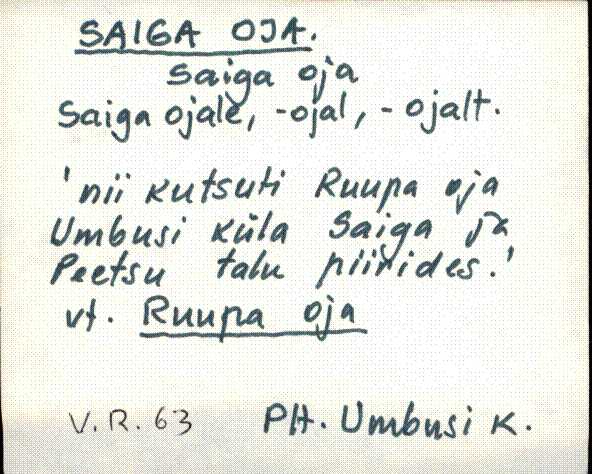 SAIGA OJA.
Saiga oja
Saiga ojale, -ojal, -ojalt.
'nii kutsuti Ruupa oja
Umbusi küla Saiga ja
Peetsu talu piirides.'
vt. Ruupa oja
V.R. 63 Plt. Umbusi k.